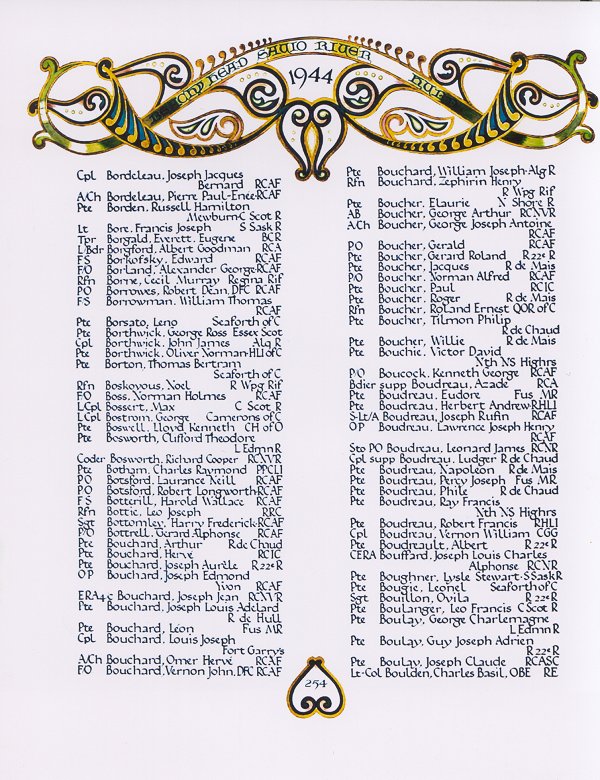 CITY HEAD SAVIO RIVER
1944
Cpl Bordeleau, Joseph Jacques
Bernard RCAF
A/Ch Bordeleau, Pierre Paul-Enée RCAF
Pte Borden, Russell Hamilton
Mewburn C Scot R
Lt Bore, Francis Joseph S Sask R
Tpr Borgald, Everett, Eugene BCR
L/Bdr Borgford, Albert Goodman RCA
FS Borkofsky, Edward RCAF
F/O Borland, Alexander George RCAF
Rfn Borne, Cecil Murray Regina Rif
PO Borrowes, Robert Dean, DFC RCAF
FS Borrowman, William Thomas
RCAF
Pte Borsato, Leno Seaforth of C
Pte Borthwick, George Ross Essex Scot
Cpl Borthwick, John James Alg R
Pte Borthwick, Oliver Norman HLI of C
Pte Borton, Thomas Bertram
Seaforth of C
Rfn Boskoyous, Noel R Wpg Rif
F/O Boss, Norman Holmes RCAF
LCpl Bossert, Max C Scot R
LCpl Bostrom, George Camerons of C
Pte Boswell, Lloyd Kenneth CH of O
Pte Bosworth, Clifford Theodore
L Edmn R
Coder Bosworth, Richard Cooper RCNVR
Pte Botham, Charles Raymond PPCLI
PO Botsford, Laurance Neill RCAF
PO Botsford, Robert Longworth RCAF
FS Botterill, Harold Wallace RCAF
Rfn Bottie, Leo Joseph RRC
Sgt Bottomley, Harry Frederick RCAF
P/O Bottrell, Gerard Alphonse RCAF
Pte Bouchard, Arthur R de Chaud
Pte Bouchard, Hervé RCIC
Pte Bouchard, Joseph Aurèle R 22e R
OP Bouchard, Joseph Edmond
Yvon RCAF
ERA4c Bouchard, Joseph Jean RCNVR
Pte Bouchard, Joseph Louis Adelard
R de Hull
Pte Bouchard, Léon Fus MR
Cpl Bouchard, Louis Joseph
Fort Garrys
A/Ch Bouchard, Omer Hervé RCAF
F/O Bouchard, Vernon John, DFC RCAF
Pte Bouchard, William Joseph Alg R
Rfn Bouchard, Zephirin Henry
R Wpg Rif
Pte Boucher, Elaurie N Shore R
AB Boucher, George Arthur RCNVR
A/Ch Boucher, George Joseph Antoine
RCAF
PO Boucher, Gerald RCAF
Pte Boucher, Gerard Roland R 22e R
Pte Boucher, Jacques R de Mais
PO Boucher, Norman Alfred RCAF
Pte Boucher, Paul RCIC
Pte Boucher, Roger R de Mais
Rfn Boucher, Roland Ernest QOR of C
Pte Boucher, Tilmon Philip
R de Chaud
Pte Boucher, Willie R de Mais
Pte Bouchie, Victor David
Nth NS Highrs
P/O Boucock, Kenneth George RCAF
Bdier supp Boudreau, Azade RCA
Pte Boudreau, Eudore Fus MR
Pte Boudreau, Herbert Andrew RHLI
S-Lt/A Boudreau, Joseph Rufin RCAF
OP Boudreau, Lawrence Joseph Henry
RCAF
Sto PO Boudreau, Leonard James RCNR
Cpl supp Boudreau, Ludger R de Chaud
Pte Boudreau, Napoléon R de Mais
Pte Boudreau, Percy Joseph Fus MR
Pte Boudreau, Phile R de Chaud
Pte Boudreau, Ray Francis
Nth NS Highrs
Pte Boudreau, Robert Francis RHLI
Cpl Boudreau, Vernon William CGG
Pte Boudreault, Albert R 22e R
CERA Bouffard, Joseph Louis Charles
Alphonse RCNR
Pte Boughner, Lysle Stewart S Sask R
Pte Bougie, Leonel Seaforth of C
Sgt Bouillon, Ovila R 22e R
Pte Boulanger, Leo Francis C Scot R
Pte Boulay, George Charlemagne
L Edmn R
Pte Boulay, Guy Joseph Adrien
R 22e R
Pte Boulay, Joseph Claude RCASC
Lt-Col Boulden, Charles Basil, OBE RE
254